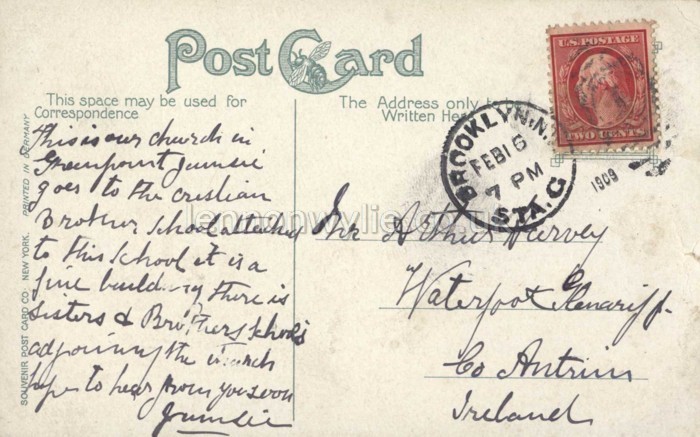 Post Card
This space may be used for
Correspondence
The Address only to be
Written Here
U.S. POSTAGE
TWO CENTS
BROOKLYN, N.Y.
FEB 16
7 PM
1909
STA. G
PRINTED IN GERMANY
SOUVENIR POST CARD CO. NEW YORK.
This is our church in
Greenpoint Jumsie
goes to the cristian
Brother school attached
to this school it is a
fine building there is
Sisters & Brothers schools
adjoining the church
hope to hear from you soon
Jumsie
Mr Arthur Harvey
Waterfoot Glenariff
Co Antrim
Ireland
lennonwylie.co.uk